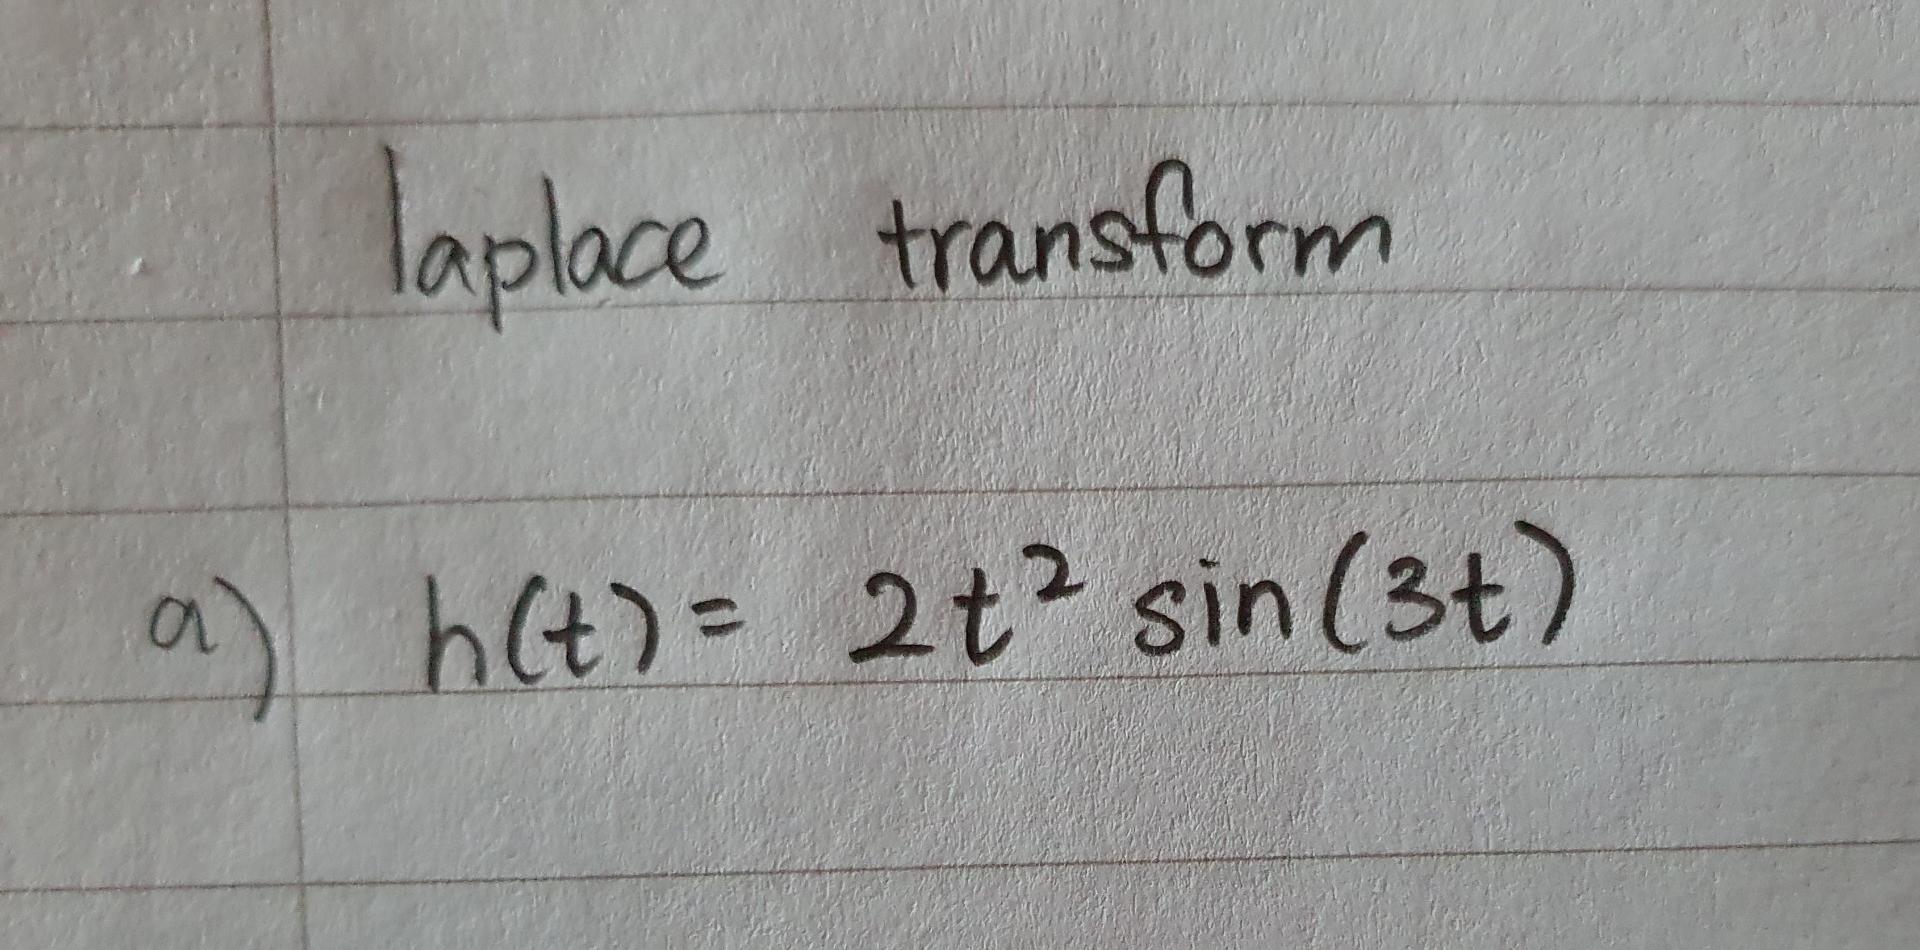 laplace transform
a) h(t) = 2t² sin(3t)